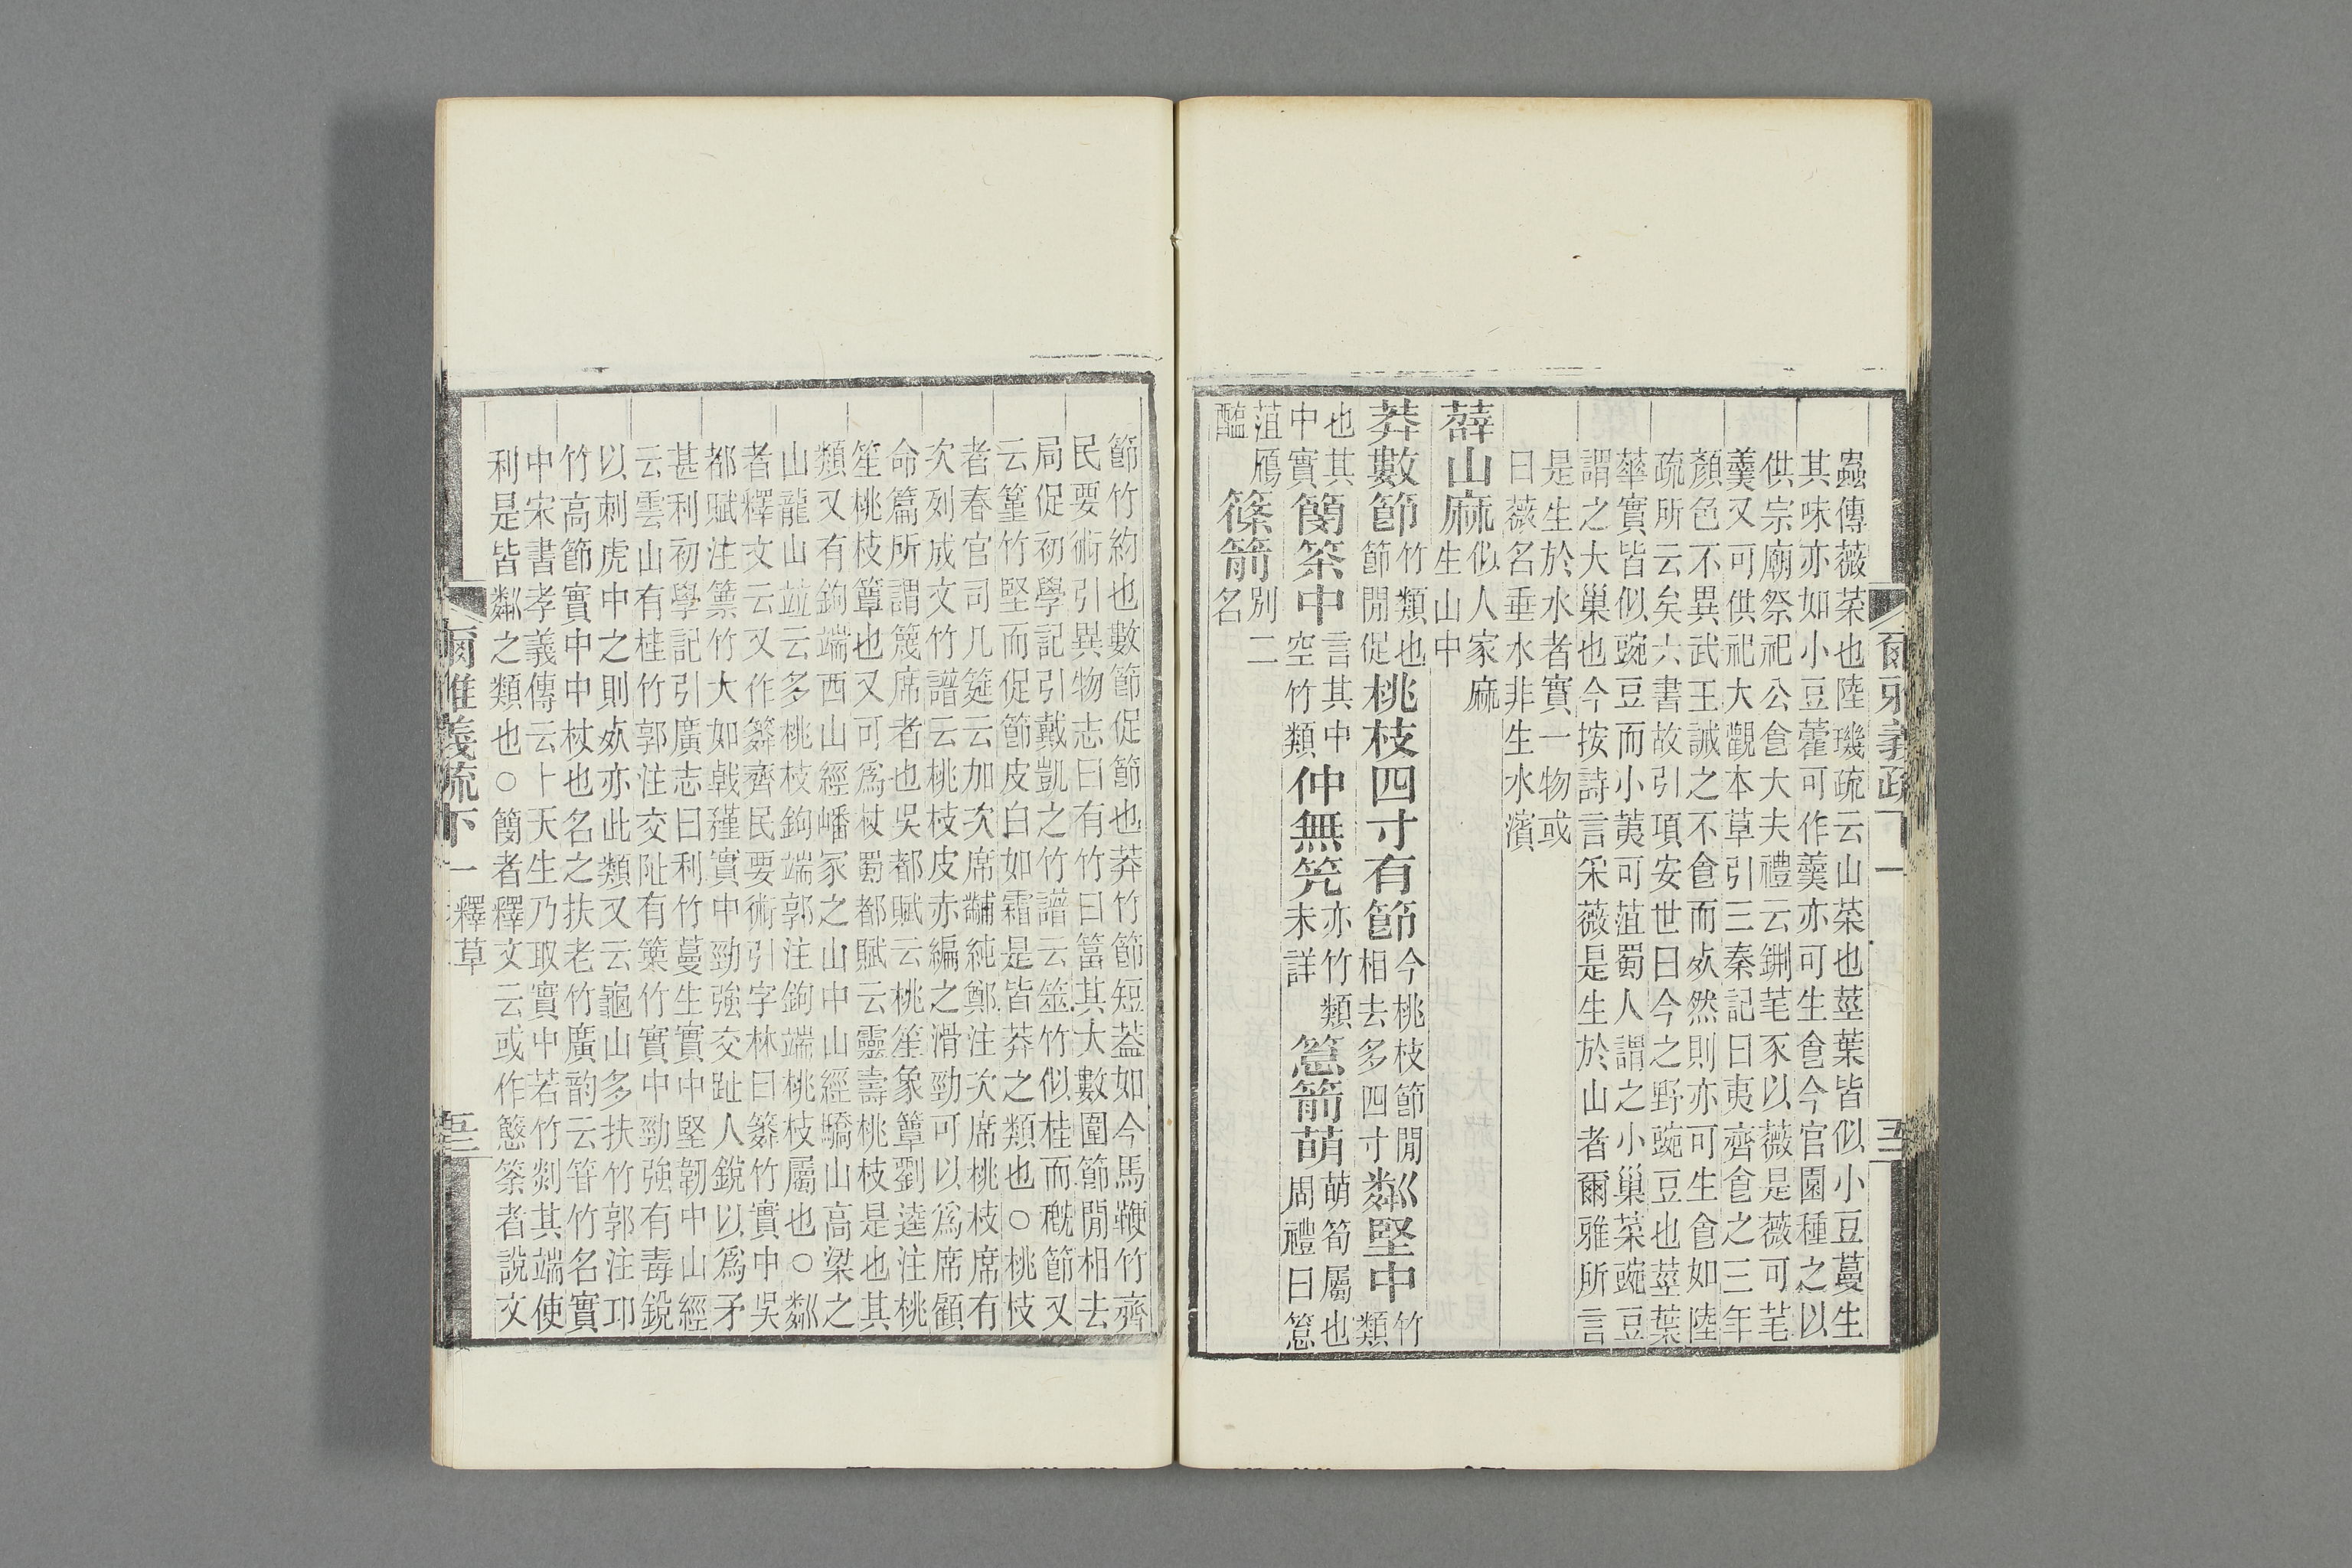 蟲傳薇菜也陸璣疏云山菜也莖葉皆似小豆蔓生
其味亦如小豆藿可作羹亦可生食今官園種之以
供宗廟祭祀公食大夫禮云鉶芼豕以薇是薇可芼
羹又可供祀大觀本草引三秦記曰夷齊食之三年
顏色不異武王誡之不食而死然則亦可生食如陸
疏所云矣六書故引項安世曰今之野豌豆也莖葉
華實皆似豌豆而小荑可菹蜀人謂之小巢菜豌豆
謂之大巢也今按詩言采薇是生於山者爾雅所言
是生於水者實一物或
曰薇名垂水非生水濱
薜山麻似人家麻生山中
莽數節竹類也節閒促桃枝四寸有節今桃枝節閒相去多四寸粼堅中竹類
也其中實簢筡中言其中空竹類仲無笐亦竹類未詳䈚箭萌萌筍屬也周禮曰䈚
菹鴈醢篠箭別二名
爾雅義疏下一
節竹約也數節促節也莽竹節短蓋如今馬鞭竹齊
民要術引異物志曰有竹曰䈏其大數圍節閒相去
局促初學記引戴凱之竹譜云筮竹似桂而穊節又
云䈽竹堅而促節皮白如霜是皆莽之類也○桃枝
者春官司几筵云加次席黼純鄭注次席桃枝席有
次列成文竹譜云桃枝皮赤編之滑勁可以爲席顧
命篇所謂篾席者也吳都賦云桃笙象簟劉逵注桃
笙桃枝簟也又可爲杖蜀都賦云靈壽桃枝是也其
類又有鉤端西山經嶓冢之山中山經驕山高梁之
山龍山竝云多桃枝鉤端郭注鉤端桃枝屬也○粼
者釋文云又作䉮齊民要術引字林曰䉮竹實中吳
都賦注篻竹大如戟䅄實中勁強交趾人銳以爲矛
甚利初學記引廣志曰利竹蔓生實中堅韌中山經
云雲山有桂竹郭注交阯有篻竹實中勁強有毒銳
以刺虎中之則死亦此類又云龜山多扶竹郭注邛
竹高節實中中杖也名之扶老竹廣韵云䇞竹名實
中宋書孝義傳云卜天生乃取實中若竹剡其端使
利是皆粼之類也○簢者釋文云或作慜筡者說文
爾雅義疏下一
釋草